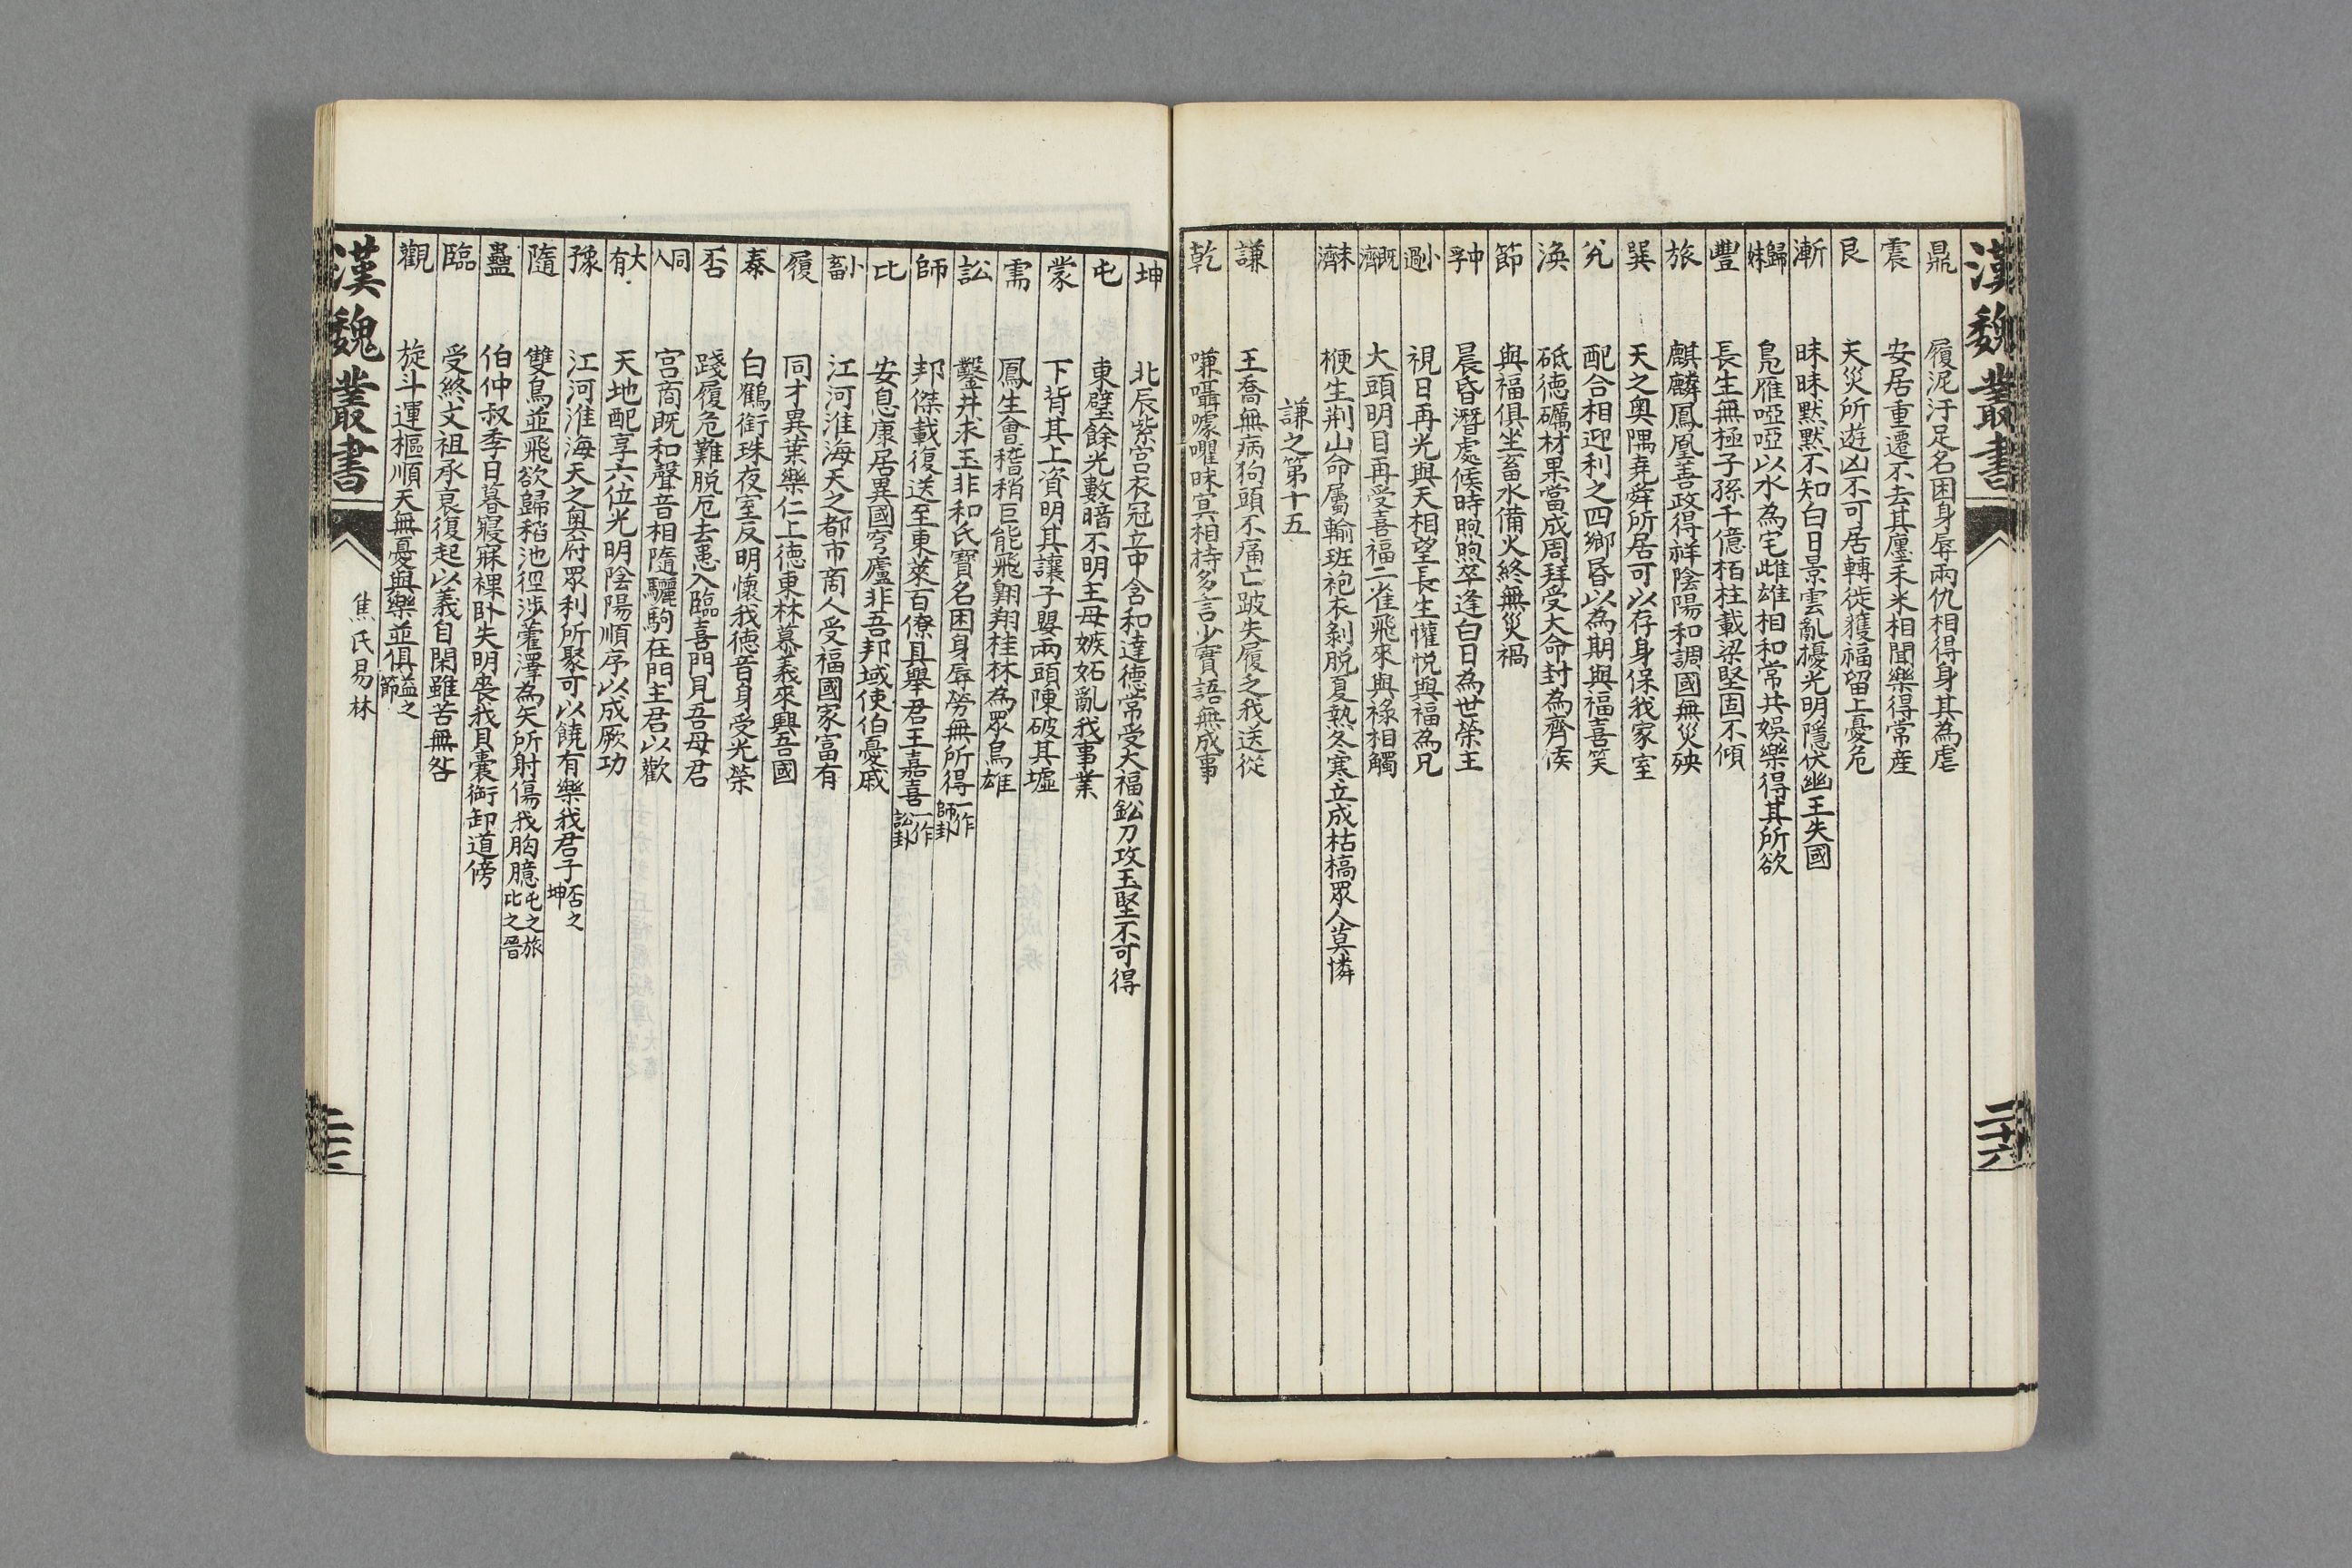 漢魏叢書
二十六
鼎 履泥汙足名困身辱兩仇相得身其為虐
震 安居重遷不去其廛禾米相聞樂得常產
艮 天災所遊凶不可居轉徙獲福留上憂危
漸 昧昧默默不知白日景雲亂擾光明隱伏幽王失國
歸妹 鳧雁啞啞以水為宅雌雄相和常共娛樂得其所欲
豐 長生無極子孫千億栢柱載梁堅固不傾
旅 麒麟鳳凰善政得祥陰陽和調國無災殃
巽 天之奥隅堯舜所居可以存身保我家室
兌 配合相迎利之四鄉昏以為期與福喜笑
渙 砥德礪材果當成周拜受大命封為齊侯
節 與福俱坐畜水備火終無災禍
中孚 晨昏潛處候時煦煦卒逢白日為世榮主
小過 視日再光與天相望長生懽悅與福為兄
既濟 大頭明目再受喜福二雀飛來與祿相觸
未濟 梗生荆山命屬輸班袍衣剝脫夏熱冬寒立成枯槁眾人莫憐
謙之第十五
謙 王喬無病狗頭不痛亡跛失履乏我送從
乾 嗛囁嚄嚁昧冥相持多言少實語無成事
坤 北辰紫宮衣冠立中含和達德常受大福鉛刀攻玉堅不可得
屯 東壁餘光數暗不明主母嫉妬亂我事業
蒙 下背其上盜明其讓子嬰兩頭陳破其墟
需 鳳生會稽稍巨能飛翺翔桂林為眾鳥雄
訟 鑿井求玉非和氏寶名困身辱勞無所得一作師卦
師 邦傑載役送至東萊百僚具舉君王嘉喜一作訟卦
比 安息康居異國穹廬非吾邦域使伯憂戚
小畜 江河淮海天之都市商人受福國家富有
履 同才異葉樂仁上德東林慕義來興吾國
泰 白鶴銜珠夜室反明懷我德音身受光榮
否 踐履危難脫厄去患入臨喜門見吾母君
同人 宮商既和聲音相隨驪駒在門主君以歡
大有 天地配享六位光明陰陽順序以成厥功
豫 江河淮海天之奥府眾利所聚可以饒有樂我君子否之坤
隨 雙鳥並飛欲歸稻池徑涉藋澤為矢所射傷我胸臆屯之旅比之晉
蠱 伯仲叔季日暮寢寐裸卧失明喪我貝囊衘卸道傍
臨 受終文祖承衰復起以義自閑雖苦無咎
觀 旋斗運樞順天無憂與樂並俱益之節
焦氏易林
漢魏叢書